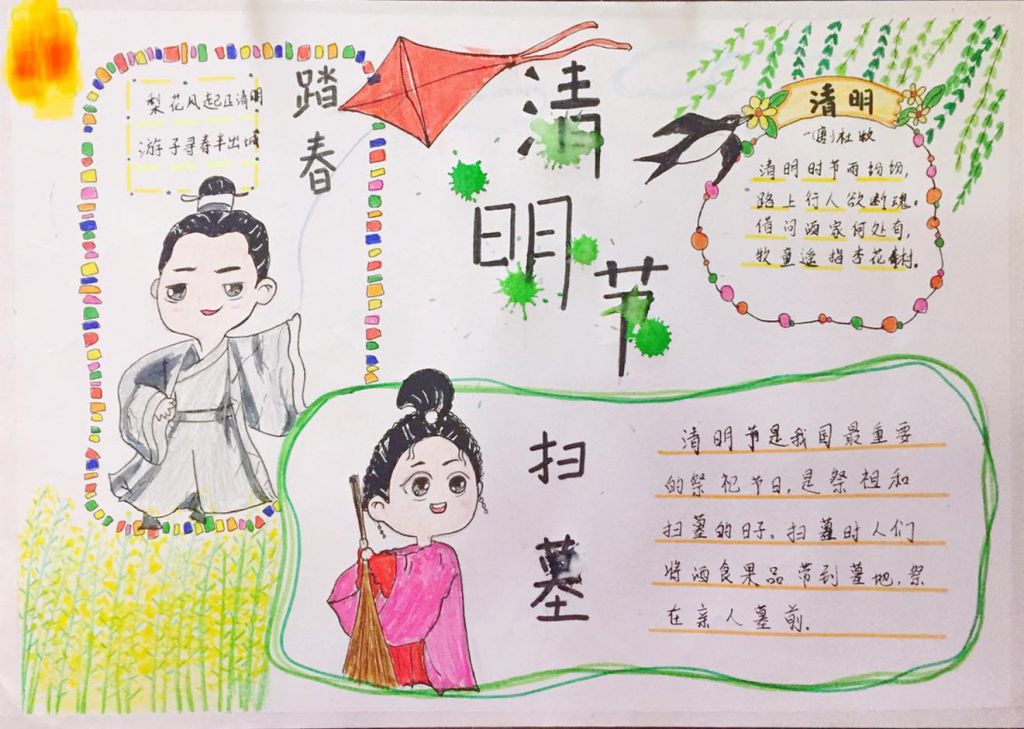 清明节
踏春
梨花风起正清明
游子寻春半出城
清明
(唐)杜牧
清明时节雨纷纷,
路上行人欲断魂。
借问酒家何处有,
牧童遥指杏花村。
扫墓
清明节是我国最重要
的祭祀节日,是祭祖和
扫墓的日子。扫墓时人们
将酒食果品带到墓地,祭
在亲人墓前.